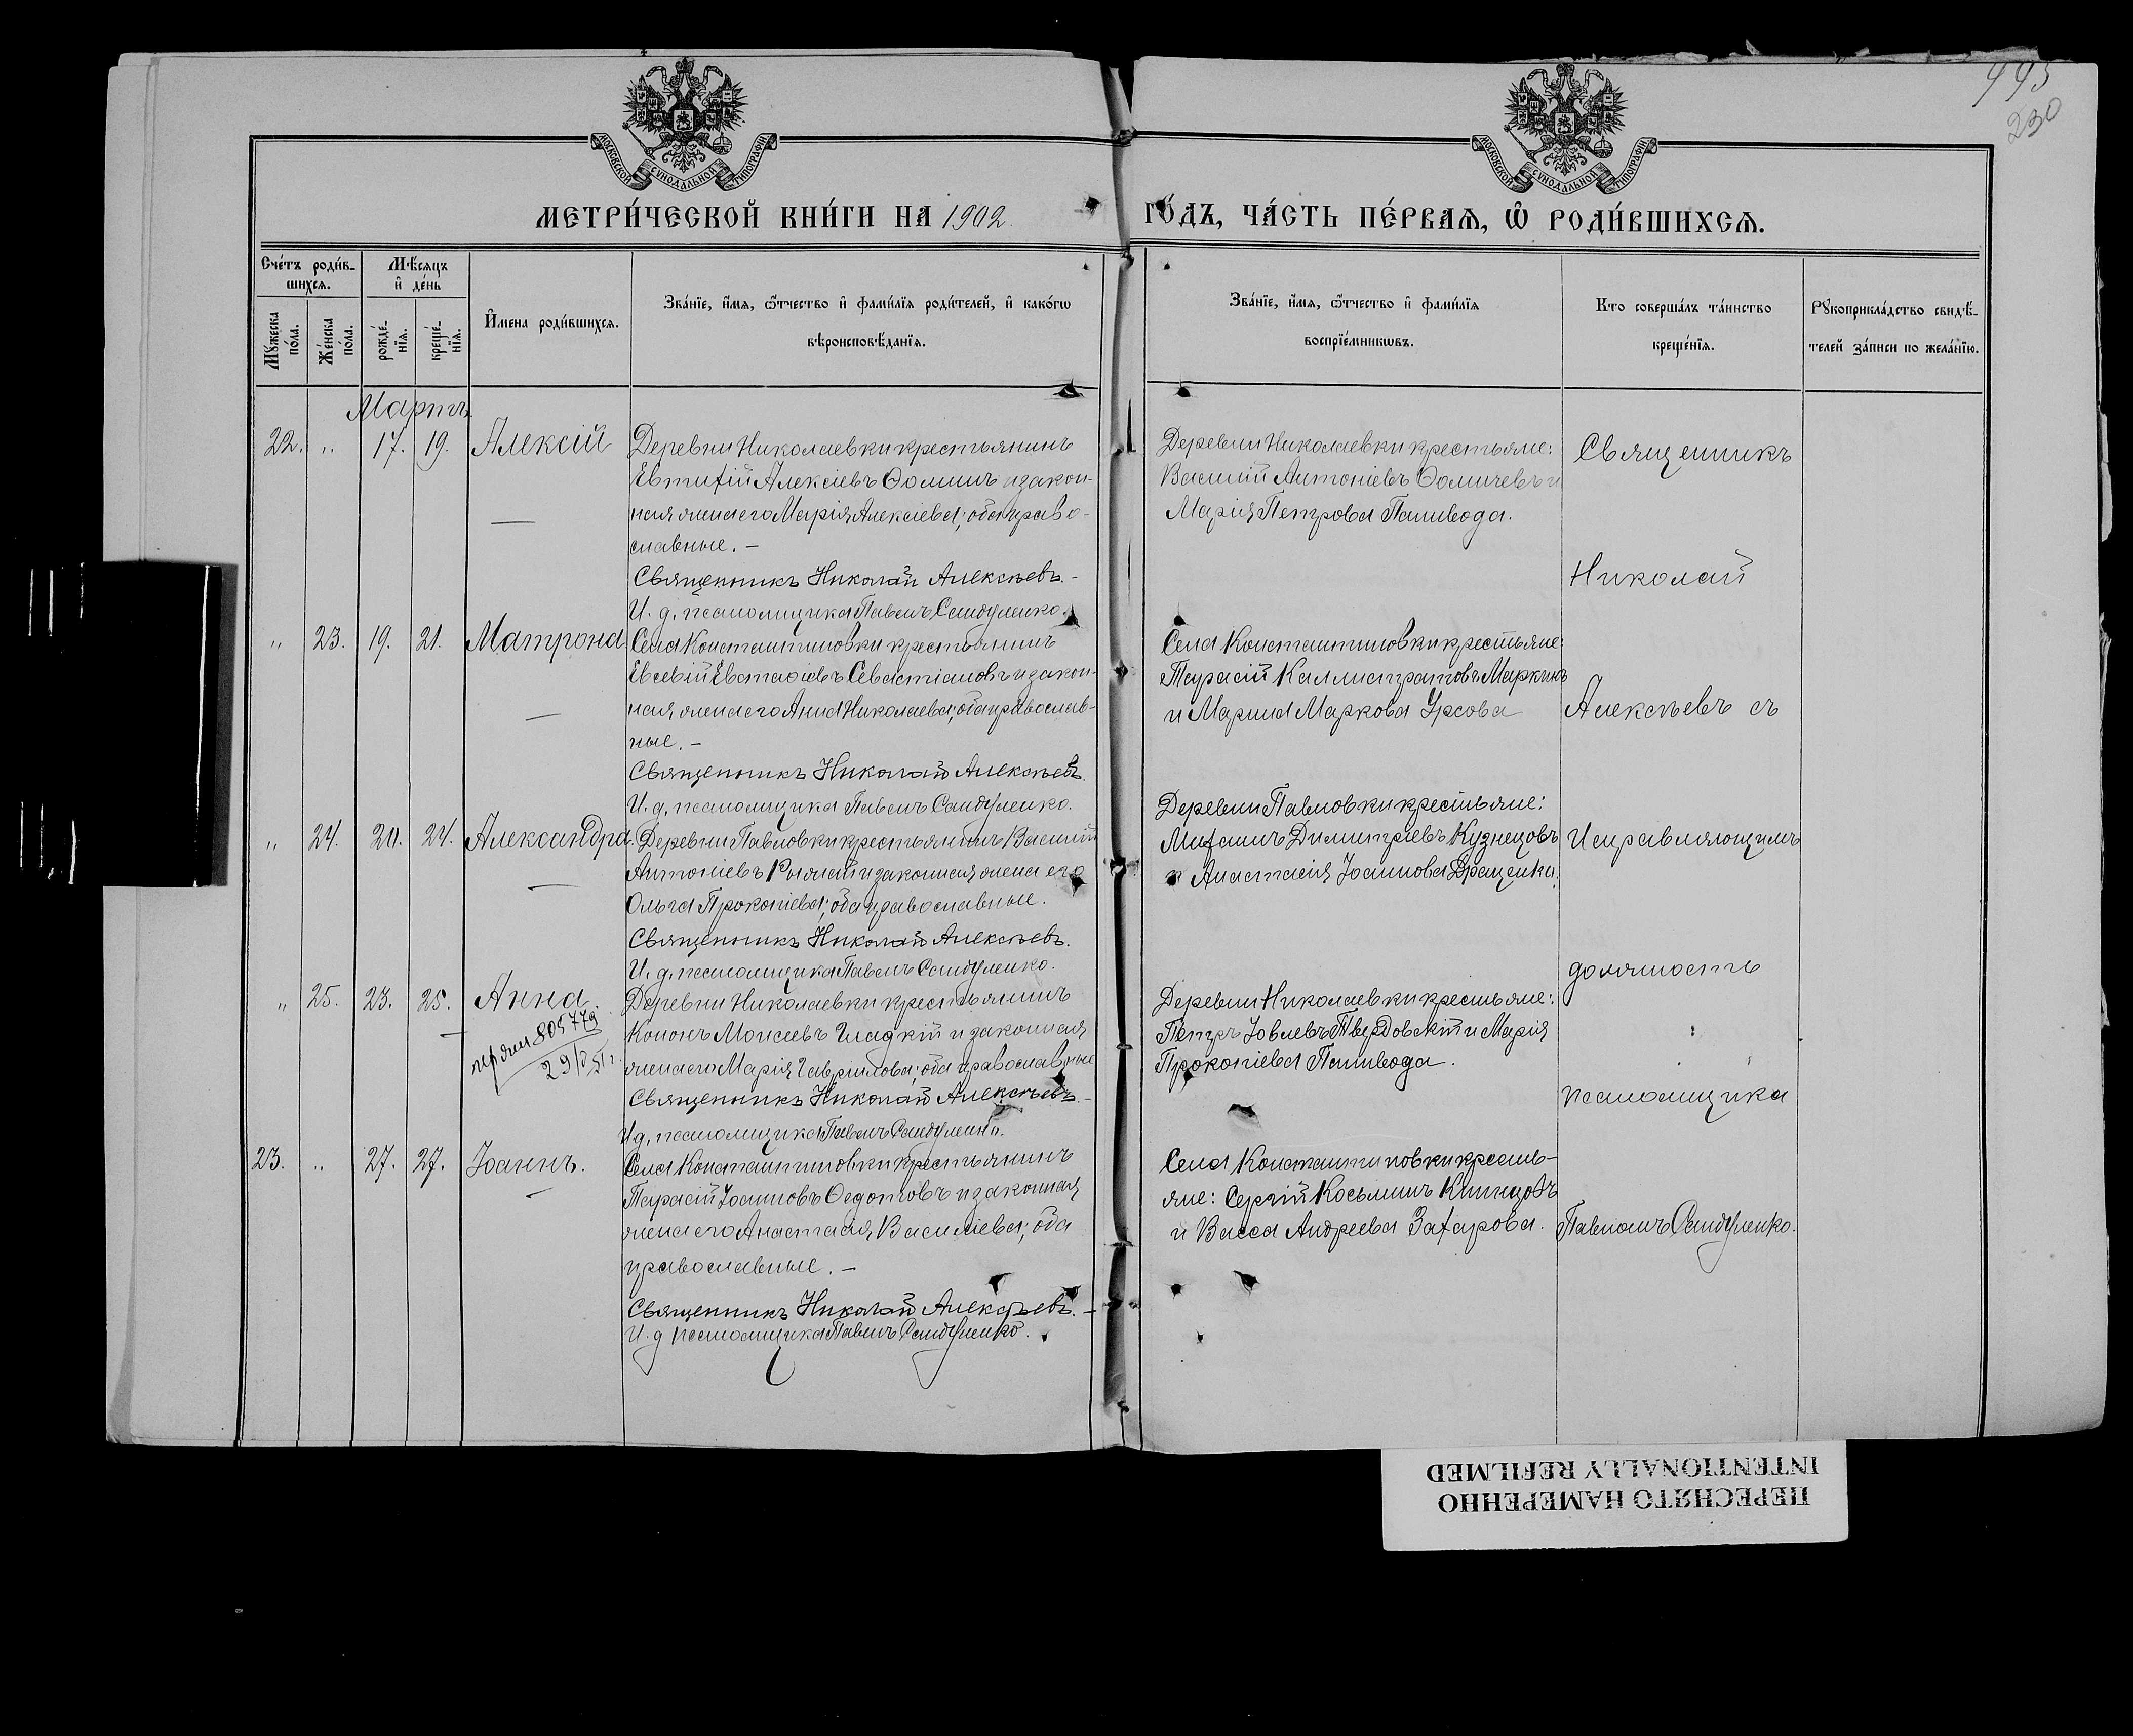 443
230
МОСКОВСКОЙ СѴНОДАЛЬНОЙ ТИПОГРАФІИ
МОСКОВСКОЙ СѴНОДАЛЬНОЙ ТИПОГРАФІИ
МЕТРИ́ЧЕСКОЙ КНИ́ГИ НА 1902 ГО́ДЪ, ЧА́СТЬ ПЕ́РВАѦ, Ѿ РОДИ́ВШИХСѦ.
Сче́тъ роди́в-
шихсѧ.
Мѣ́сѧцъ
и҆ де́нь
Мꙋ́жеска по́ла.
Же́нска по́ла.
рожде́-нїѧ.
креще́-нїѧ.
И҆мена роди́вшихсѧ.
Зва́нїе, и҆́мѧ, ѻ҆́тчество и҆ фами́лїѧ роди́телей, и҆ како́гѡ
вѣроисповѣ́данїѧ.
Зва́нїе, и҆́мѧ, ѻ҆́тчество и҆ фами́лїѧ
воспрїе́мникѡвъ.
Кто соверша́лъ та́инство
креще́нїѧ.
Рꙋкоприкла́дство свидѣ́-
телей за́писи по жела́нїю.
Мартъ
22. „ 17. 19. Алексій
Деревни Николаевки крестьянинъ
Евтихій Алексіевъ Ѳоминъ и закон-
ная жена его Марія Алексіева; оба право-
славные. –
Священникъ Николай Алексѣевъ. –
И. д. псаломщика Павелъ Сандуленко.
Деревни Николаевки крестьяне:
Василій Антоніевъ Ѳомичевъ и
Марія Петрова Паливода.
„ 23. 19. 21. Матрона
Села Константиновки крестьянинъ
Евсевій Евстаѳіевъ Севастіановъ и закон-
ная жена его Анна Николаева; оба православ-
ные. –
Священникъ Николай Алексѣевъ.
И. д. псаломщика Павелъ Сандуленко.
Села Константиновки крестьяне:
Тарасій Каллистратовъ Маркинъ
и Марина Маркова Урсова
„ 24. 20. 24. Александра.
Деревни Павловки крестьянинъ Василій
Антоніевъ и законная жена его
Ольга Прокопіева; оба православные.
Священникъ Николай Алексѣевъ.
И. д. псаломщика Павелъ Сандуленко.
Деревни Павловки крестьяне:
Михаилъ Димитріевъ Кузнецовъ
и Анастасія Іоаннова
„ 25. 23. 25. Анна.
Деревни Николаевки крестьянинъ
Кононъ Моисеевъ Гладкій и законная
жена его Марія Гаврилова; оба православные
Священникъ Николай Алексѣевъ. –
И д. псаломщика Павелъ Сандуленко.
Деревни Николаевки крестьяне:
Петръ Іовлевъ Твердовскій и Марія
Прокопіева Паливода.
23. „ 27. 27. Іоаннъ.
Села Константиновки крестьянинъ
Тарасій Іоанновъ Ѳедотовъ и законная
жена его Анастасія Василіева; оба
православные. –
Священникъ Николай Алексѣевъ. –
И. д псаломщика Павелъ Сандуленко.
Села Константиновки кресть-
яне: Сергій Косьминъ
и Васса Андреева Захарова.
Священникъ
Николай
Алексѣевъ съ
Исправляющимъ
должность
псаломщика
Павломъ Сандуленко.
ПЕРЕСНЯТО НАМЕРЕННО
INTENTIONALLY REFILMED